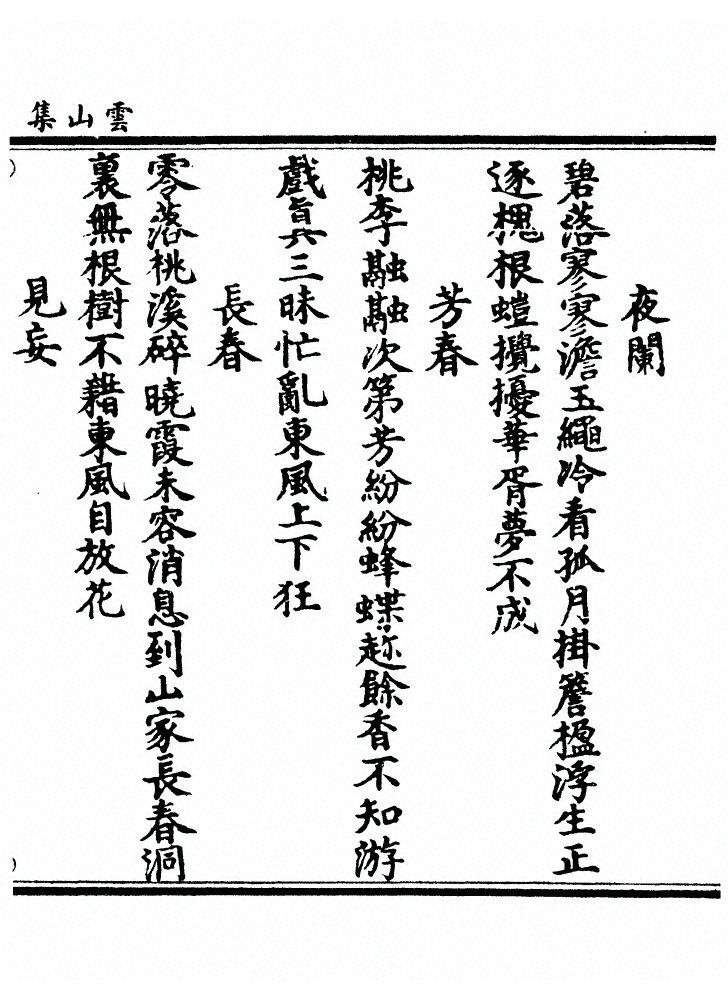 雲山集
夜闌
碧落寥寥澹玉繩冷看孤月掛簷楹浮生正
逐槐根螘攪擾華胥夢不成
芳春
桃李融融次第芳紛紛蜂蝶趂餘香不知游
戲真三昧忙亂東風上下狂
長春
零落桃溪碎曉霞未容消息到山家長春洞
裏無根樹不藉東風自放花
見妄